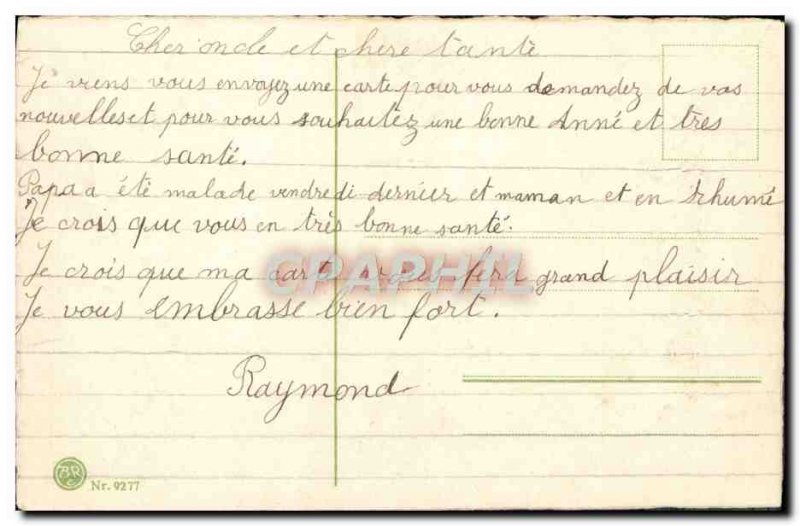 Cher oncle et chere tante
Je viens vous envoyez une carte pour vous demandez de vos
nouvelleset pour vous souhaitez une bonne Anné et tres
bonne santé.
Papa a été malade vendredi dernier et maman et en rhumé
Je crois que vous en très bonne santé.
Je crois que ma carte vous fera grand plaisir
Je vous embrasse bien fort.
Raymond
CPAPHIL
BR
Nr. 9277